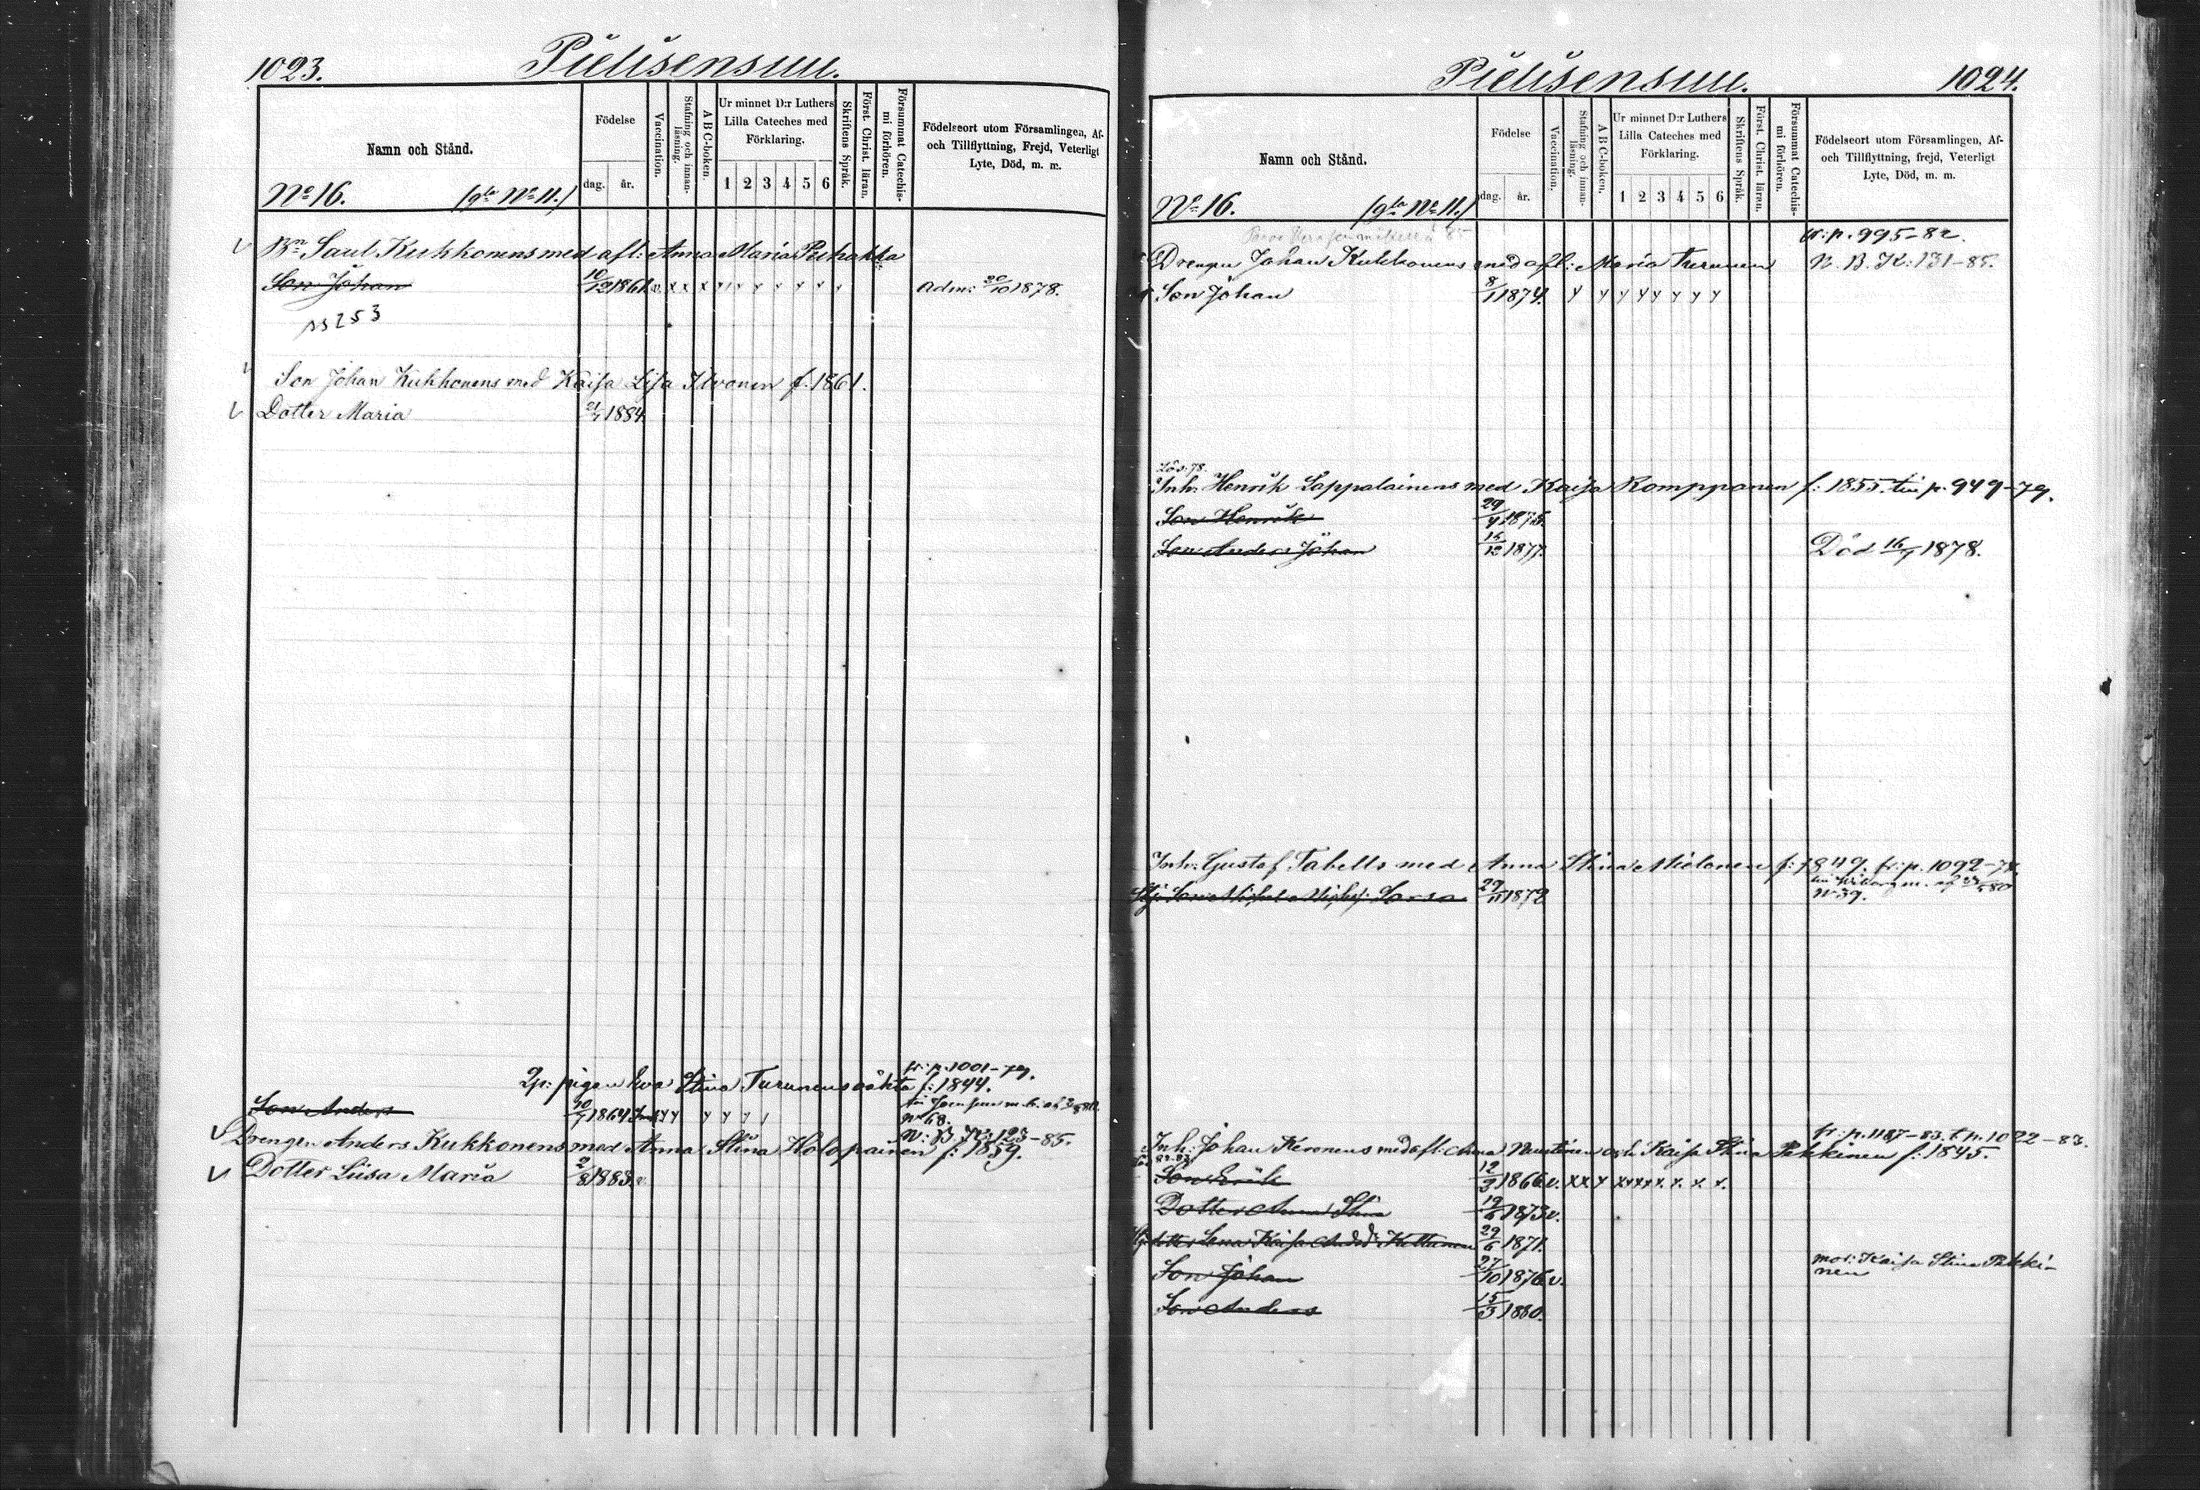 1023. Pielisensuu.
Namn och Stånd.
Födelse
dag. år.
Vaccination.
Stafning och innanläsning.
A B C-boken.
Ur minnet D:r Luthers Lilla Cateches med Förklaring.
1 2 3 4 5 6
Skriftens Språk.
Först. Christ. läran.
Försummat Catechismi förhören.
Födelseort utom Församlingen, Af- och Tillflyttning, Frejd, Veterligt Lyte, Död, m. m.
No 16. (gla No 11.)
Bn Saul Kukkonens med afl: Anna Maria Puhakka
Son Johan 10/12 1861. v. x x x Adm: 20/10 1878.
ss 253
Son Johan Kukkonens med Kaisa Lisa Ilvonen f. 1861.
Dotter Maria 21/7 1884.
fr: p. 1001-79.
pigan Eva Stina Turunens oäkta f: 1844.
Son Anders 1864
No 68.
N: B. K: 123-85.
Drengen Anders Kukkonens med Anna Stina Holopainen f: 1859.
Dotter Liisa Maria 2/8 1883. v.
Pielisensuu. 1024.
Namn och Stånd.
Födelse
dag. år.
Vaccination.
Stafning och innanläsning.
A B C-boken.
Ur minnet D:r Luthers Lilla Cateches med Förklaring.
1 2 3 4 5 6
Skriftens Språk.
Först. Christ. läran.
Försummat Catechismi förhören.
Födelseort utom Församlingen, Af- och Tillflyttning, frejd, Veterligt Lyte, Död, m. m.
No 16. (gla No 11.)
fr: p. 995-82.
Drengen Johan Kukkonens med afl: Maria Turunen N. B. K: 131-85.
Son Johan 8/1 1874.
Inh: Henrik Lappalainens med Kaisa Romppanen f: 1855. till p. 949-79.
Son Henrik 29/4 1875.
Son Anders Johan 15/12 1877. Död 16/7 1878.
Inh: Gustaf Tabells med Anna Stina Mielonen f: 1849. fr: p. 1092-78.
No 39.
1872
fr: p. 1187-83. t. p. 1022-83.
Inh: Johan Keronens med afl: Anna Mustonen och Kaisa Stina Pakkinen f: 1845.
Son Erik 12/3 1866. v.
Dotter Anna Stina 19/6 1873. v.
dotter Lena Kaisa Andsdr Kettunen 29/6 1871.
Son Johan 27/10 1876. v. mod: Kaisa Stina Pakkinen
Son Anders 15/3 1880.